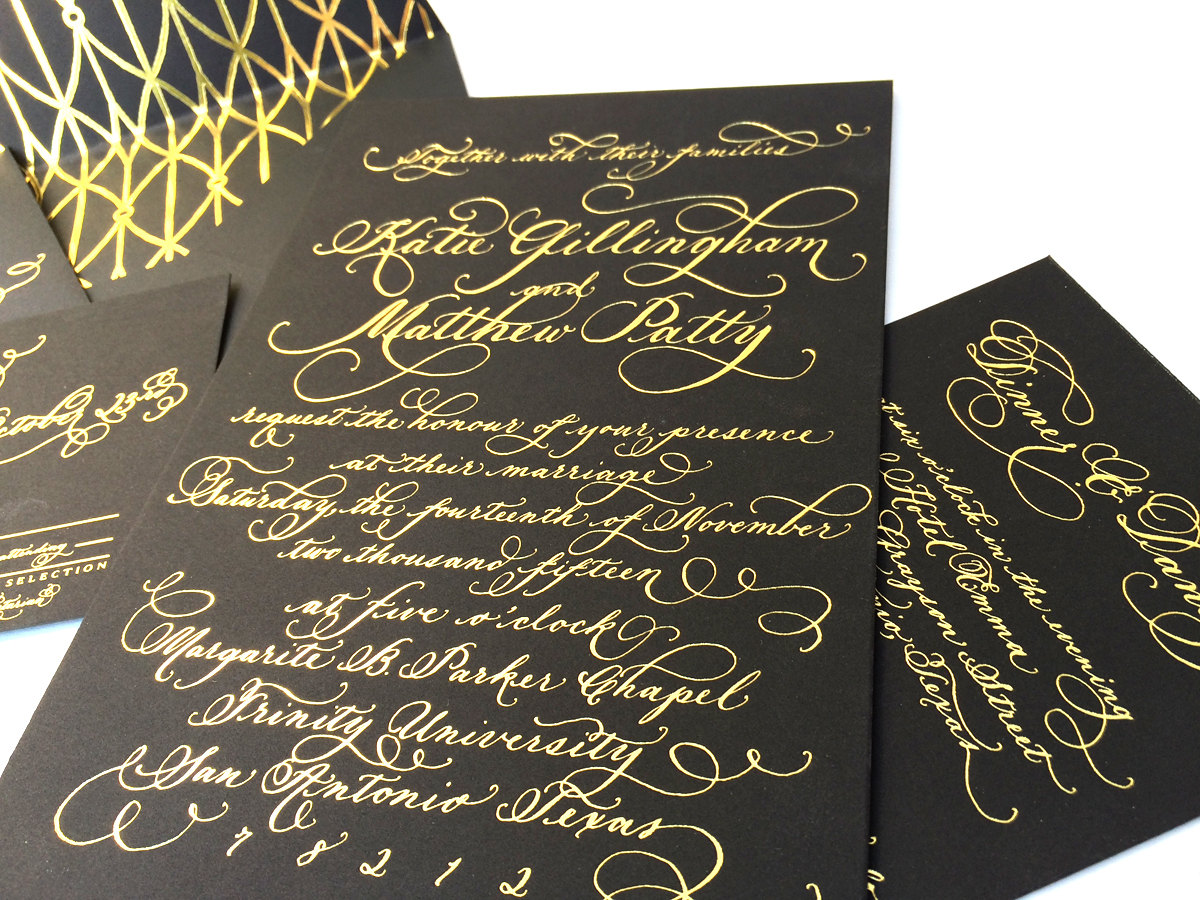 Together with their families
Katie Gillingham
and
Matthew Patty
request the honour of your presence
at their marriage
Saturday, the fourteenth of November
two thousand fifteen
at five o'clock
Margarite B. Parker Chapel
Trinity University
San Antonio Texas
7 8 2 1 2
October 23rd
SELECTION
Dinner &
six o'clock in the evening
Hotel Emma
Grayson Street
Texas